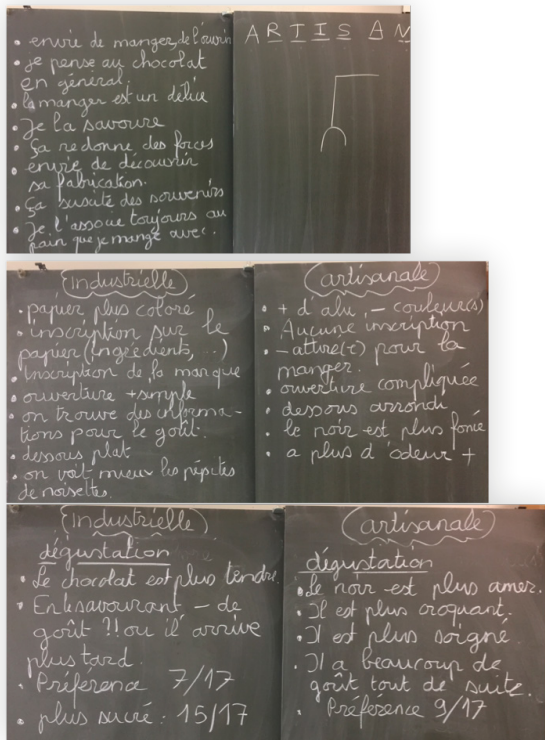 • envie de manger, de l'ouvrir
• je pense au chocolat
en général.
• la manger est un délice
• Je la savoure
• Ça redonne des forces
• envie de découvrir
sa fabrication.
• Ça suscite des souvenirs
• Je l'associe toujours au
pain que je mange avec.
ARTISAN
(industrielle)
• papier plus coloré
• inscription sur le
papier (Ingrédients, ..)
• inscription de la marque
• ouverture + simple
• on trouve des informa-
tions pour le goût.
• dessous plat
• on voit mieux les pépites
de noisettes.
(artisanale)
• + d'alu, - couleur(s)
• Aucune inscription
• - attiré(e) pour la
manger.
• ouverture compliquée
• dessous arrondi
• le noir est plus foncé
• a plus d'odeur +
(industrielle)
dégustation
• Le chocolat est plus tendre.
• En le savourant - de
goût ?! ou il arrive
plus tard.
• Préférence 7/17
• plus sucré : 15/17
(artisanale)
dégustation
• Le noir est plus amer.
• Il est plus croquant.
• Il est plus soigné.
• Il a beaucoup de
goût tout de suite.
• Préférence 9/17